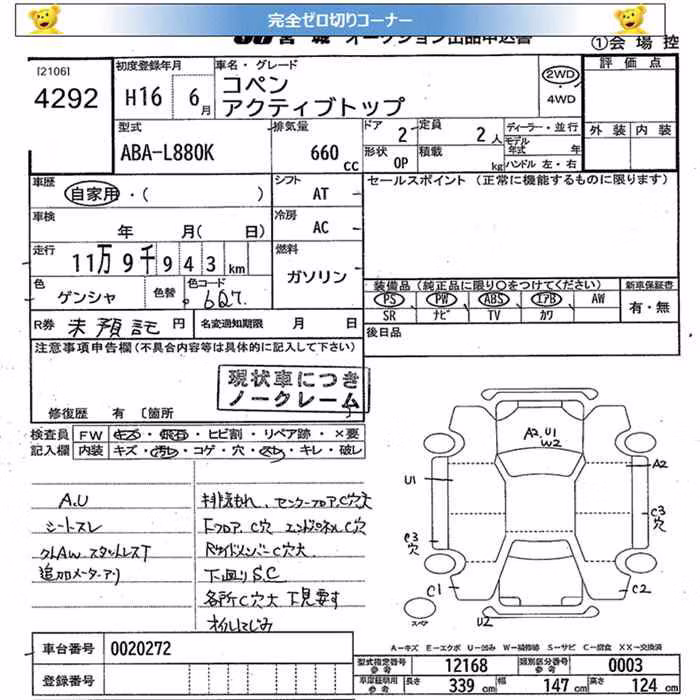 完全ゼロ切りコーナー
オークション出品申込書
①会場控
[2106]
4292
初度登録年月
H16 6月
車名・グレード
コペン
アクティブトップ
2WD
4WD
評価点
外装 内装
型式
ABA-L880K
排気量
660 cc
ドア 2
定員 2人
形状 OP
積載 kg
ディーラー・並行
モデル年式 年
ハンドル 左・右
車歴
自家用・( )
シフト
AT
セールスポイント (正常に機能するものに限ります)
車検
年 月( 日)
冷房
AC
走行
11万9千943km
燃料
ガソリン
色
ゲンシャ
色替
色コード
6Q7
装備品(純正品に限り○をつけてください)
PS PW ABS エアB AW
SR ナビ TV カワ
新車保証書
有・無
R券 未預託 円
名変通知期限 月 日
後日品
注意事項申告欄(不具合内容等は具体的に記入して下さい)
現状車につき
ノークレーム
修復歴 有 〔箇所
検査員
記入欄
FW キズ・飛石・ヒビ割・リペア跡・×要
内装 キズ・汚レ・コゲ・穴・スレ・キレ・破レ
A.U
シートスレ
社外AW スタットレスT
追加メーターアリ
排気もれ、センターフロアC穴大
Fフロア、C穴 エンドパネルC穴
Rサイドメンバー C穴大
下回りS.C
各所C穴大 下見要す
オイルにじみ
A2,U1
W2
U1
A2
C3
穴
C3
穴
C1
C2
U2
スペア
A-キズ E-エクボ U-凹み W-補修跡 S-サビ C-腐食 XX-交換済
車台番号 0020272
登録番号
型式指定番号
参考
12168
類別区分番号
参考
0003
車庫証明用
参考
長さ 339cm
幅 147cm
高さ 124cm